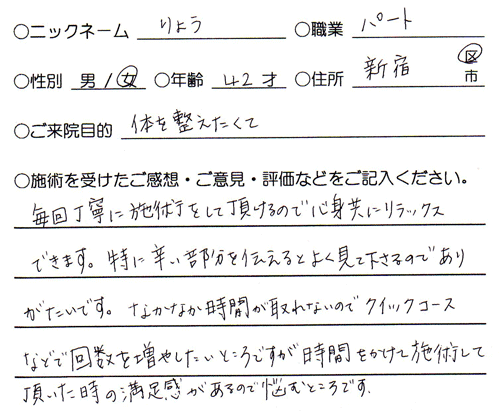 ○ニックネーム りょう ○職業 パート
○性別 男/女 ○年齢 42才 ○住所 新宿 区 市
○ご来院目的 体を整えたくて
○施術を受けたご感想・ご意見・評価などをご記入ください。
毎回丁寧に施術をして頂けるので心身共にリラックス
できます。特に辛い部分を伝えるとよく見て下さるのであり
がたいです。なかなか時間が取れないのでクイックコース
などで回数を増やしたいところですが時間をかけて施術して
頂いた時の満足感があるので悩むところです。